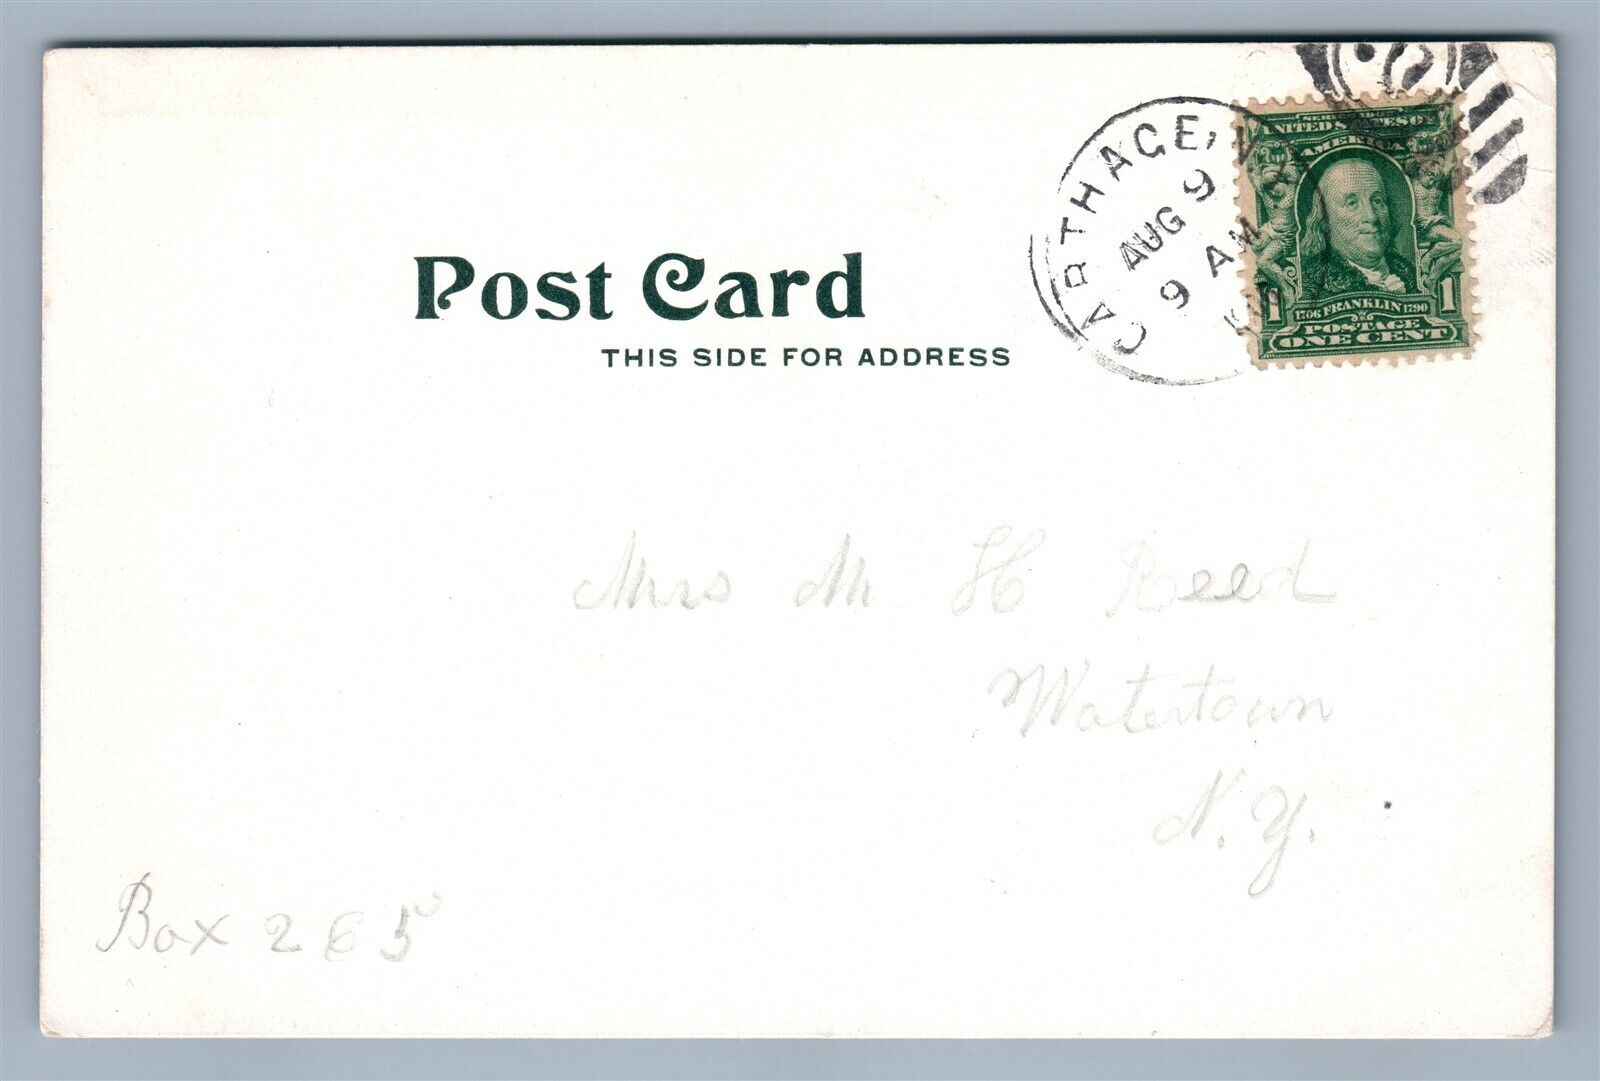 CARTHAGE,
AUG 9
9 AM
SERIES 1902
UNITED STATES OF
AMERICA
1706 FRANKLIN 1790
POSTAGE
1 ONE CENT 1
Post Card
THIS SIDE FOR ADDRESS
Mrs M H Reed
Watertown
N.Y.
Box 265